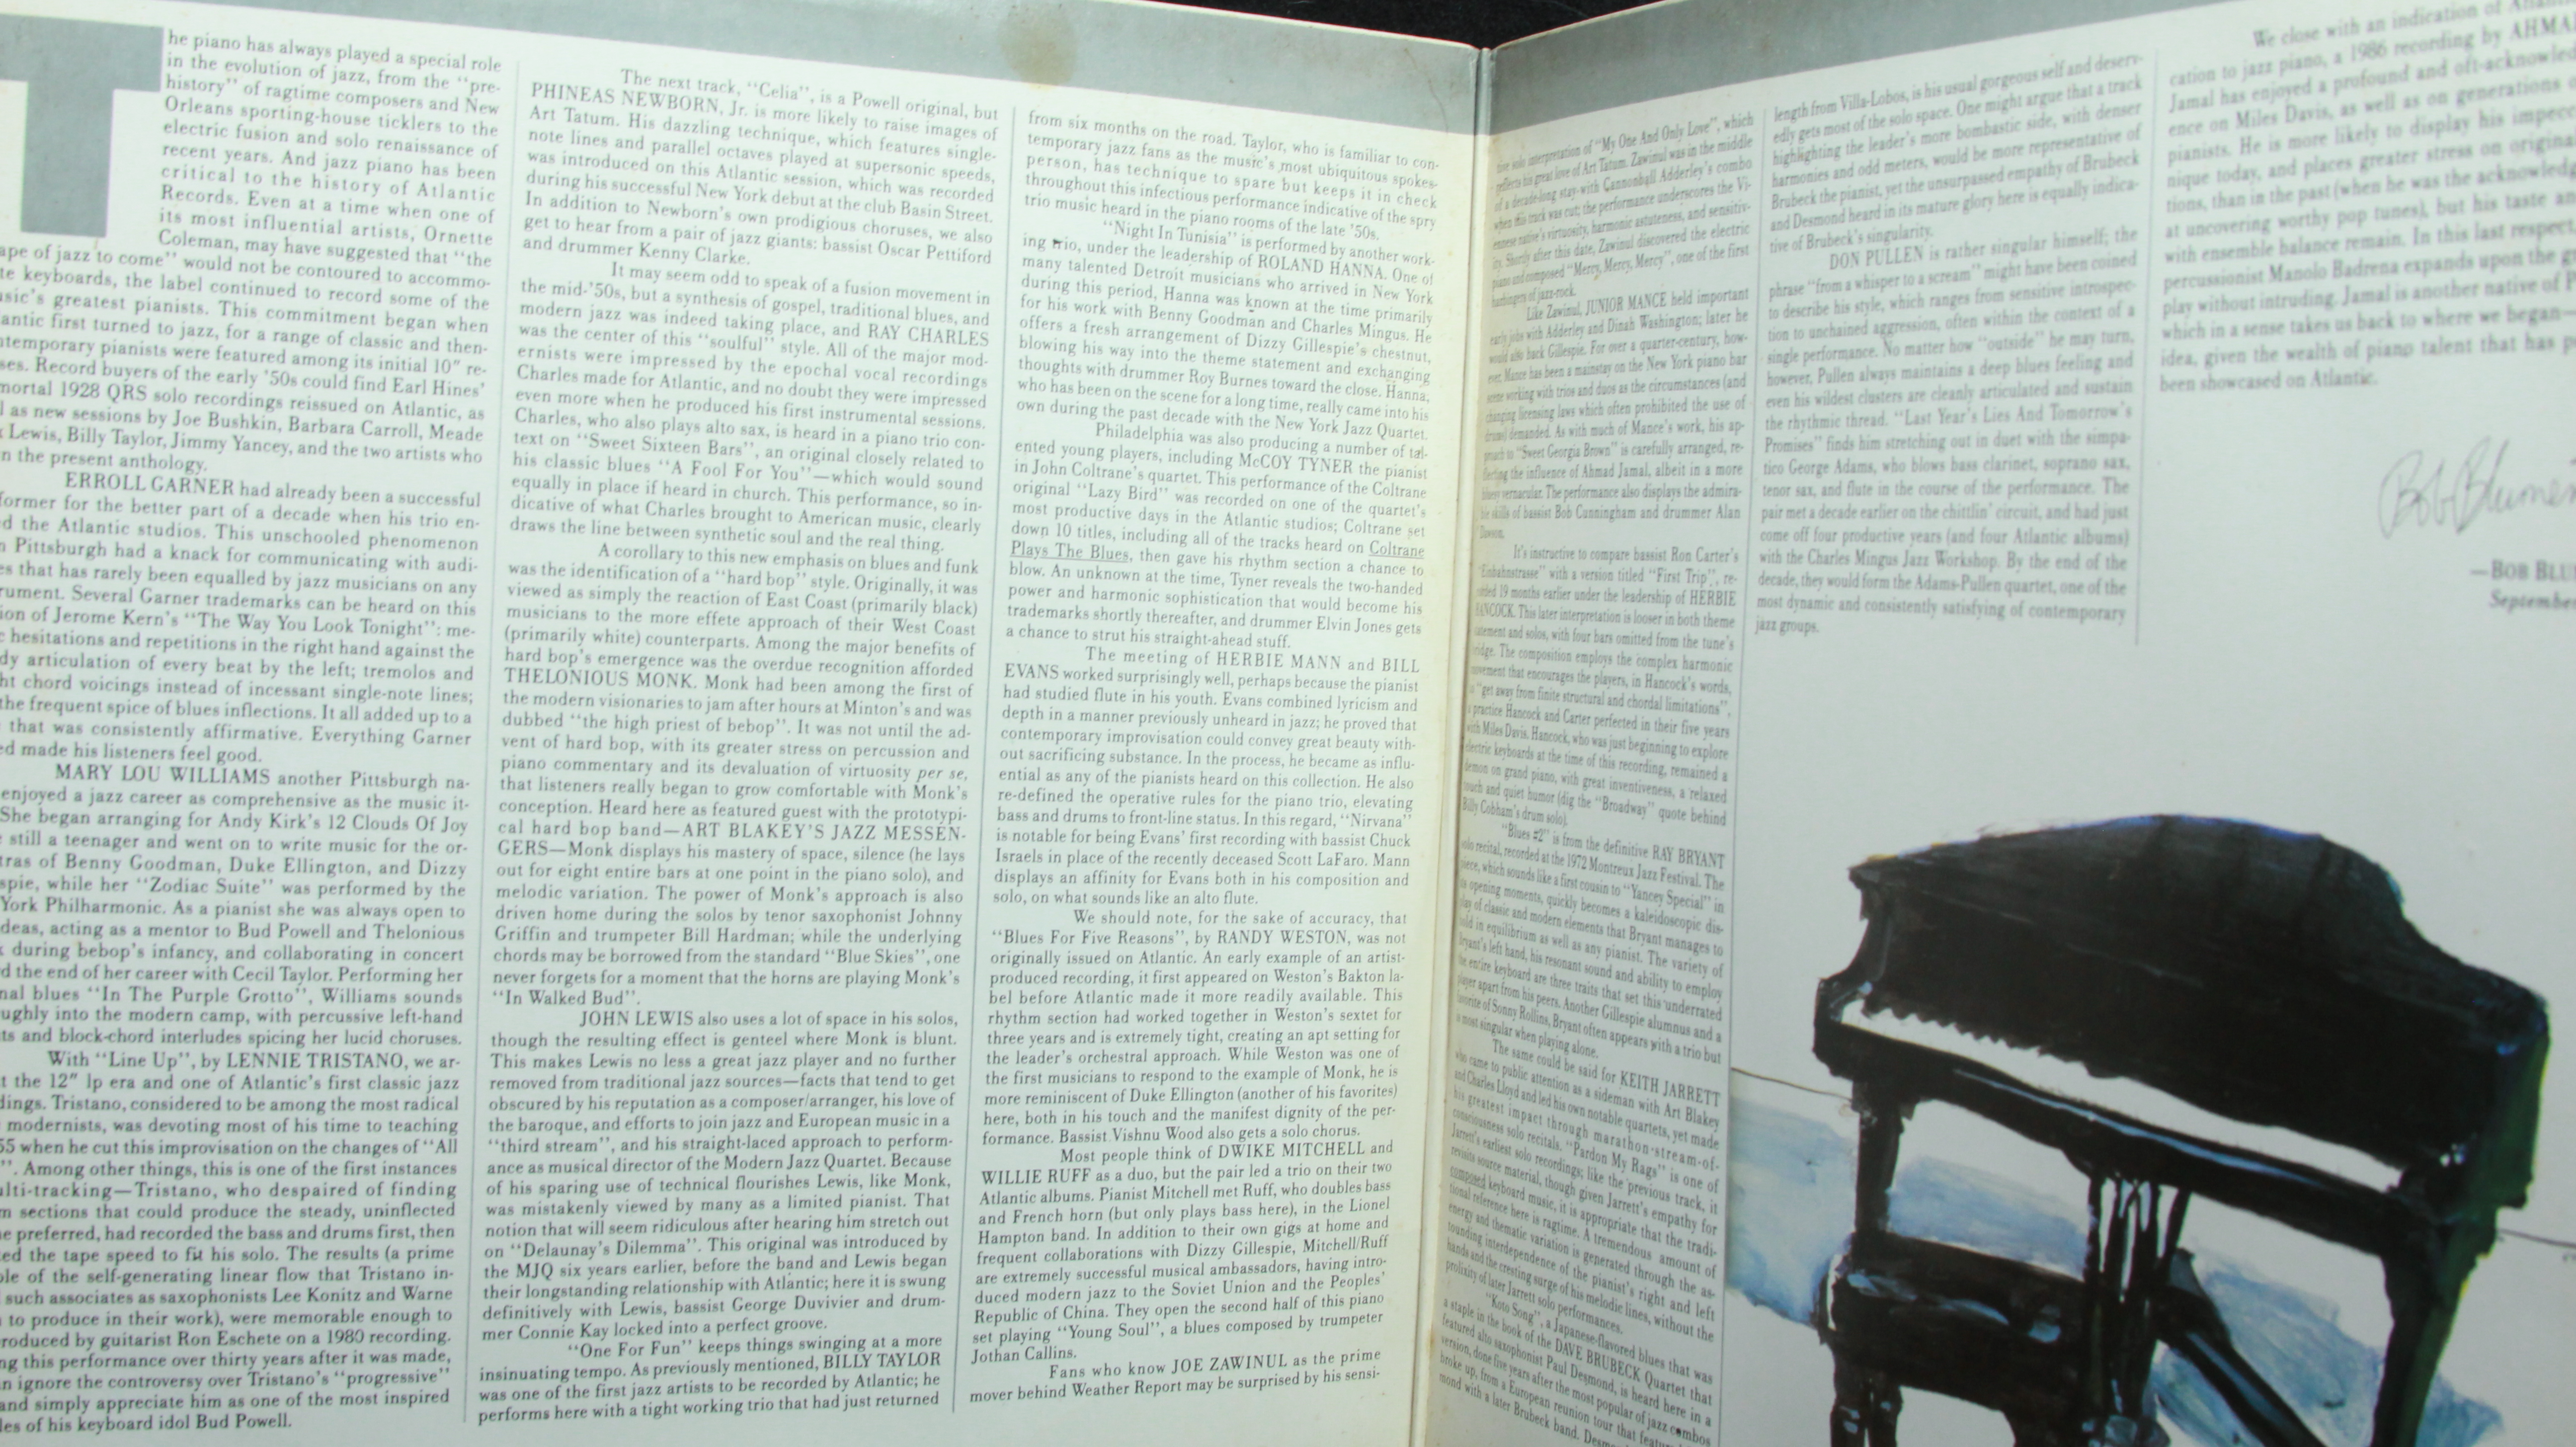 T
he piano has always played a special role
in the evolution of jazz, from the "pre-
history" of ragtime composers and New
Orleans sporting-house ticklers to the
electric fusion and solo renaissance of
recent years. And jazz piano has been
critical to the history of Atlantic
Records. Even at a time when one of
its most influential artists, Ornette
Coleman, may have suggested that "the
ape of jazz to come" would not be contoured to accommo-
te keyboards, the label continued to record some of the
usic's greatest pianists. This commitment began when
antic first turned to jazz, for a range of classic and then-
ntemporary pianists were featured among its initial 10" re-
ses. Record buyers of the early '50s could find Earl Hines'
mortal 1928 QRS solo recordings reissued on Atlantic, as
l as new sessions by Joe Bushkin, Barbara Carroll, Meade
Lewis, Billy Taylor, Jimmy Yancey, and the two artists who
n the present anthology.
ERROLL GARNER had already been a successful
former for the better part of a decade when his trio en-
d the Atlantic studios. This unschooled phenomenon
Pittsburgh had a knack for communicating with audi-
es that has rarely been equalled by jazz musicians on any
rument. Several Garner trademarks can be heard on this
ion of Jerome Kern's "The Way You Look Tonight": me-
c hesitations and repetitions in the right hand against the
dy articulation of every beat by the left; tremolos and
ht chord voicings instead of incessant single-note lines;
the frequent spice of blues inflections. It all added up to a
that was consistently affirmative. Everything Garner
ed made his listeners feel good.
MARY LOU WILLIAMS another Pittsburgh na-
enjoyed a jazz career as comprehensive as the music it-
She began arranging for Andy Kirk's 12 Clouds Of Joy
still a teenager and went on to write music for the or-
tras of Benny Goodman, Duke Ellington, and Dizzy
spie, while her "Zodiac Suite" was performed by the
York Philharmonic. As a pianist she was always open to
deas, acting as a mentor to Bud Powell and Thelonious
k during bebop's infancy, and collaborating in concert
d the end of her career with Cecil Taylor. Performing her
nal blues "In The Purple Grotto", Williams sounds
ughly into the modern camp, with percussive left-hand
ts and block-chord interludes spicing her lucid choruses.
With "Line Up", by LENNIE TRISTANO, we ar-
t the 12" lp era and one of Atlantic's first classic jazz
dings. Tristano, considered to be among the most radical
modernists, was devoting most of his time to teaching
55 when he cut this improvisation on the changes of "All
". Among other things, this is one of the first instances
ulti-tracking—Tristano, who despaired of finding
m sections that could produce the steady, uninflected
e preferred, had recorded the bass and drums first, then
ed the tape speed to fit his solo. The results (a prime
ple of the self-generating linear flow that Tristano in-
such associates as saxophonists Lee Konitz and Warne
to produce in their work), were memorable enough to
roduced by guitarist Ron Eschete on a 1980 recording.
ng this performance over thirty years after it was made,
n ignore the controversy over Tristano's "progressive"
and simply appreciate him as one of the most inspired
les of his keyboard idol Bud Powell.
The next track, "Celia", is a Powell original, but
PHINEAS NEWBORN, Jr. is more likely to raise images of
Art Tatum. His dazzling technique, which features single-
note lines and parallel octaves played at supersonic speeds,
was introduced on this Atlantic session, which was recorded
during his successful New York debut at the club Basin Street.
In addition to Newborn's own prodigious choruses, we also
get to hear from a pair of jazz giants: bassist Oscar Pettiford
and drummer Kenny Clarke.
It may seem odd to speak of a fusion movement in
the mid-'50s, but a synthesis of gospel, traditional blues, and
modern jazz was indeed taking place, and RAY CHARLES
was the center of this "soulful" style. All of the major mod-
ernists were impressed by the epochal vocal recordings
Charles made for Atlantic, and no doubt they were impressed
even more when he produced his first instrumental sessions.
Charles, who also plays alto sax, is heard in a piano trio con-
text on "Sweet Sixteen Bars", an original closely related to
his classic blues "A Fool For You"—which would sound
equally in place if heard in church. This performance, so in-
dicative of what Charles brought to American music, clearly
draws the line between synthetic soul and the real thing.
A corollary to this new emphasis on blues and funk
was the identification of a "hard bop" style. Originally, it was
viewed as simply the reaction of East Coast (primarily black)
musicians to the more effete approach of their West Coast
(primarily white) counterparts. Among the major benefits of
hard bop's emergence was the overdue recognition afforded
THELONIOUS MONK. Monk had been among the first of
the modern visionaries to jam after hours at Minton's and was
dubbed "the high priest of bebop". It was not until the ad-
vent of hard bop, with its greater stress on percussion and
piano commentary and its devaluation of virtuosity per se,
that listeners really began to grow comfortable with Monk's
conception. Heard here as featured guest with the prototypi-
cal hard bop band—ART BLAKEY'S JAZZ MESSEN-
GERS—Monk displays his mastery of space, silence (he lays
out for eight entire bars at one point in the piano solo), and
melodic variation. The power of Monk's approach is also
driven home during the solos by tenor saxophonist Johnny
Griffin and trumpeter Bill Hardman; while the underlying
chords may be borrowed from the standard "Blue Skies", one
never forgets for a moment that the horns are playing Monk's
"In Walked Bud".
JOHN LEWIS also uses a lot of space in his solos,
though the resulting effect is genteel where Monk is blunt.
This makes Lewis no less a great jazz player and no further
removed from traditional jazz sources—facts that tend to get
obscured by his reputation as a composer/arranger, his love of
the baroque, and efforts to join jazz and European music in a
"third stream", and his straight-laced approach to perform-
ance as musical director of the Modern Jazz Quartet. Because
of his sparing use of technical flourishes Lewis, like Monk,
was mistakenly viewed by many as a limited pianist. That
notion that will seem ridiculous after hearing him stretch out
on "Delaunay's Dilemma". This original was introduced by
the MJQ six years earlier, before the band and Lewis began
their longstanding relationship with Atlantic; here it is swung
definitively with Lewis, bassist George Duvivier and drum-
mer Connie Kay locked into a perfect groove.
"One For Fun" keeps things swinging at a more
insinuating tempo. As previously mentioned, BILLY TAYLOR
was one of the first jazz artists to be recorded by Atlantic; he
performs here with a tight working trio that had just returned
from six months on the road. Taylor, who is familiar to con-
temporary jazz fans as the music's most ubiquitous spokes-
person, has technique to spare but keeps it in check
throughout this infectious performance indicative of the spry
trio music heard in the piano rooms of the late '50s.
"Night In Tunisia" is performed by another work-
ing trio, under the leadership of ROLAND HANNA. One of
many talented Detroit musicians who arrived in New York
during this period, Hanna was known at the time primarily
for his work with Benny Goodman and Charles Mingus. He
offers a fresh arrangement of Dizzy Gillespie's chestnut,
blowing his way into the theme statement and exchanging
thoughts with drummer Roy Burnes toward the close. Hanna,
who has been on the scene for a long time, really came into his
own during the past decade with the New York Jazz Quartet.
Philadelphia was also producing a number of tal-
ented young players, including McCOY TYNER the pianist
in John Coltrane's quartet. This performance of the Coltrane
original "Lazy Bird" was recorded on one of the quartet's
most productive days in the Atlantic studios; Coltrane set
down 10 titles, including all of the tracks heard on Coltrane
Plays The Blues, then gave his rhythm section a chance to
blow. An unknown at the time, Tyner reveals the two-handed
power and harmonic sophistication that would become his
trademarks shortly thereafter, and drummer Elvin Jones gets
a chance to strut his straight-ahead stuff.
The meeting of HERBIE MANN and BILL
EVANS worked surprisingly well, perhaps because the pianist
had studied flute in his youth. Evans combined lyricism and
depth in a manner previously unheard in jazz; he proved that
contemporary improvisation could convey great beauty with-
out sacrificing substance. In the process, he became as influ-
ential as any of the pianists heard on this collection. He also
re-defined the operative rules for the piano trio, elevating
bass and drums to front-line status. In this regard, "Nirvana"
is notable for being Evans' first recording with bassist Chuck
Israels in place of the recently deceased Scott LaFaro. Mann
displays an affinity for Evans both in his composition and
solo, on what sounds like an alto flute.
We should note, for the sake of accuracy, that
"Blues For Five Reasons", by RANDY WESTON, was not
originally issued on Atlantic. An early example of an artist-
produced recording, it first appeared on Weston's Bakton la-
bel before Atlantic made it more readily available. This
rhythm section had worked together in Weston's sextet for
three years and is extremely tight, creating an apt setting for
the leader's orchestral approach. While Weston was one of
the first musicians to respond to the example of Monk, he is
more reminiscent of Duke Ellington (another of his favorites)
here, both in his touch and the manifest dignity of the per-
formance. Bassist Vishnu Wood also gets a solo chorus.
Most people think of DWIKE MITCHELL and
WILLIE RUFF as a duo, but the pair led a trio on their two
Atlantic albums. Pianist Mitchell met Ruff, who doubles bass
and French horn (but only plays bass here), in the Lionel
Hampton band. In addition to their own gigs at home and
frequent collaborations with Dizzy Gillespie, Mitchell/Ruff
are extremely successful musical ambassadors, having intro-
duced modern jazz to the Soviet Union and the Peoples'
Republic of China. They open the second half of this piano
set playing "Young Soul", a blues composed by trumpeter
Jothan Callins.
Fans who know JOE ZAWINUL as the prime
mover behind Weather Report may be surprised by his sensi-
tive solo interpretation of "My One And Only Love", which
reflects his great love of Art Tatum. Zawinul was in the middle
of a decade-long stay with Cannonball Adderley's combo
when this track was cut; the performance underscores the Vi-
ennese native's virtuosity, harmonic astuteness, and sensitiv-
ity. Shortly after this date, Zawinul discovered the electric
piano and composed "Mercy, Mercy, Mercy", one of the first
harbingers of jazz-rock.
Like Zawinul, JUNIOR MANCE held important
early jobs with Adderley and Dinah Washington; later he
would also back Gillespie. For over a quarter-century, how-
ever, Mance has been a mainstay on the New York piano bar
scene working with trios and duos as the circumstances (and
changing licensing laws which often prohibited the use of
drums) demanded. As with much of Mance's work, his ap-
proach to "Sweet Georgia Brown" is carefully arranged, re-
flecting the influence of Ahmad Jamal, albeit in a more
bluesy vernacular. The performance also displays the admira-
ble skills of bassist Bob Cunningham and drummer Alan
Dawson.
It's instructive to compare bassist Ron Carter's
"Einbahnstrasse" with a version titled "First Trip", re-
corded 19 months earlier under the leadership of HERBIE
HANCOCK. This later interpretation is looser in both theme
statement and solos, with four bars omitted from the tune's
bridge. The composition employs the complex harmonic
movement that encourages the players, in Hancock's words,
to "get away from finite structural and chordal limitations",
a practice Hancock and Carter perfected in their five years
with Miles Davis. Hancock, who was just beginning to explore
electric keyboards at the time of this recording, remained a
demon on grand piano, with great inventiveness, a relaxed
touch and quiet humor (dig the "Broadway" quote behind
Billy Cobham's drum solo).
"Blues #2" is from the definitive RAY BRYANT
solo recital, recorded at the 1972 Montreux Jazz Festival. The
piece, which sounds like a first cousin to "Yancey Special" in
its opening moments, quickly becomes a kaleidoscopic dis-
play of classic and modern elements that Bryant manages to
hold in equilibrium as well as any pianist. The variety of
Bryant's left hand, his resonant sound and ability to employ
the entire keyboard are three traits that set this underrated
player apart from his peers. Another Gillespie alumnus and a
favorite of Sonny Rollins, Bryant often appears with a trio but
is most singular when playing alone.
The same could be said for KEITH JARRETT
who came to public attention as a sideman with Art Blakey
and Charles Lloyd and led his own notable quartets, yet made
his greatest impact through marathon-stream-of-
consciousness solo recitals. "Pardon My Rags" is one of
Jarrett's earliest solo recordings; like the previous track, it
revisits source material, though given Jarrett's empathy for
composed keyboard music, it is appropriate that the tradi-
tional reference here is ragtime. A tremendous amount of
energy and thematic variation is generated through the as-
tounding interdependence of the pianist's right and left
hands and the cresting surge of his melodic lines, without the
prolixity of later Jarrett solo performances.
"Koto Song", a Japanese-flavored blues that was
a staple in the book of the DAVE BRUBECK Quartet that
featured alto saxophonist Paul Desmond, is heard here in a
version, done five years after the most popular of jazz combos
broke up, from a European reunion tour that featu
mond with a later Brubeck band. Desm
length from Villa-Lobos, is his usual gorgeous self and deserv-
edly gets most of the solo space. One might argue that a track
highlighting the leader's more bombastic side, with denser
harmonies and odd meters, would be more representative of
Brubeck the pianist, yet the unsurpassed empathy of Brubeck
and Desmond heard in its mature glory here is equally indica-
tive of Brubeck's singularity.
DON PULLEN is rather singular himself; the
phrase "from a whisper to a scream" might have been coined
to describe his style, which ranges from sensitive introspec-
tion to unchained aggression, often within the context of a
single performance. No matter how "outside" he may turn,
however, Pullen always maintains a deep blues feeling and
even his wildest clusters are cleanly articulated and sustain
the rhythmic thread. "Last Year's Lies And Tomorrow's
Promises" finds him stretching out in duet with the simpa-
tico George Adams, who blows bass clarinet, soprano sax,
tenor sax, and flute in the course of the performance. The
pair met a decade earlier on the chittlin' circuit, and had just
come off four productive years (and four Atlantic albums)
with the Charles Mingus Jazz Workshop. By the end of the
decade, they would form the Adams-Pullen quartet, one of the
most dynamic and consistently satisfying of contemporary
jazz groups.
We close with an indication of
cation to jazz piano, a 1986 recording by AHMA
Jamal has enjoyed a profound and oft-acknowled
ence on Miles Davis, as well as on generations
pianists. He is more likely to display his impecc
nique today, and places greater stress on origina
tions, than in the past (when he was the acknowledg
at uncovering worthy pop tunes), but his taste a
with ensemble balance remain. In this last respect,
percussionist Manolo Badrena expands upon the g
play without intruding. Jamal is another native of P
which in a sense takes us back to where we began—
idea, given the wealth of piano talent that has p
been showcased on Atlantic.
Bob Blumen
—BOB BLU
September